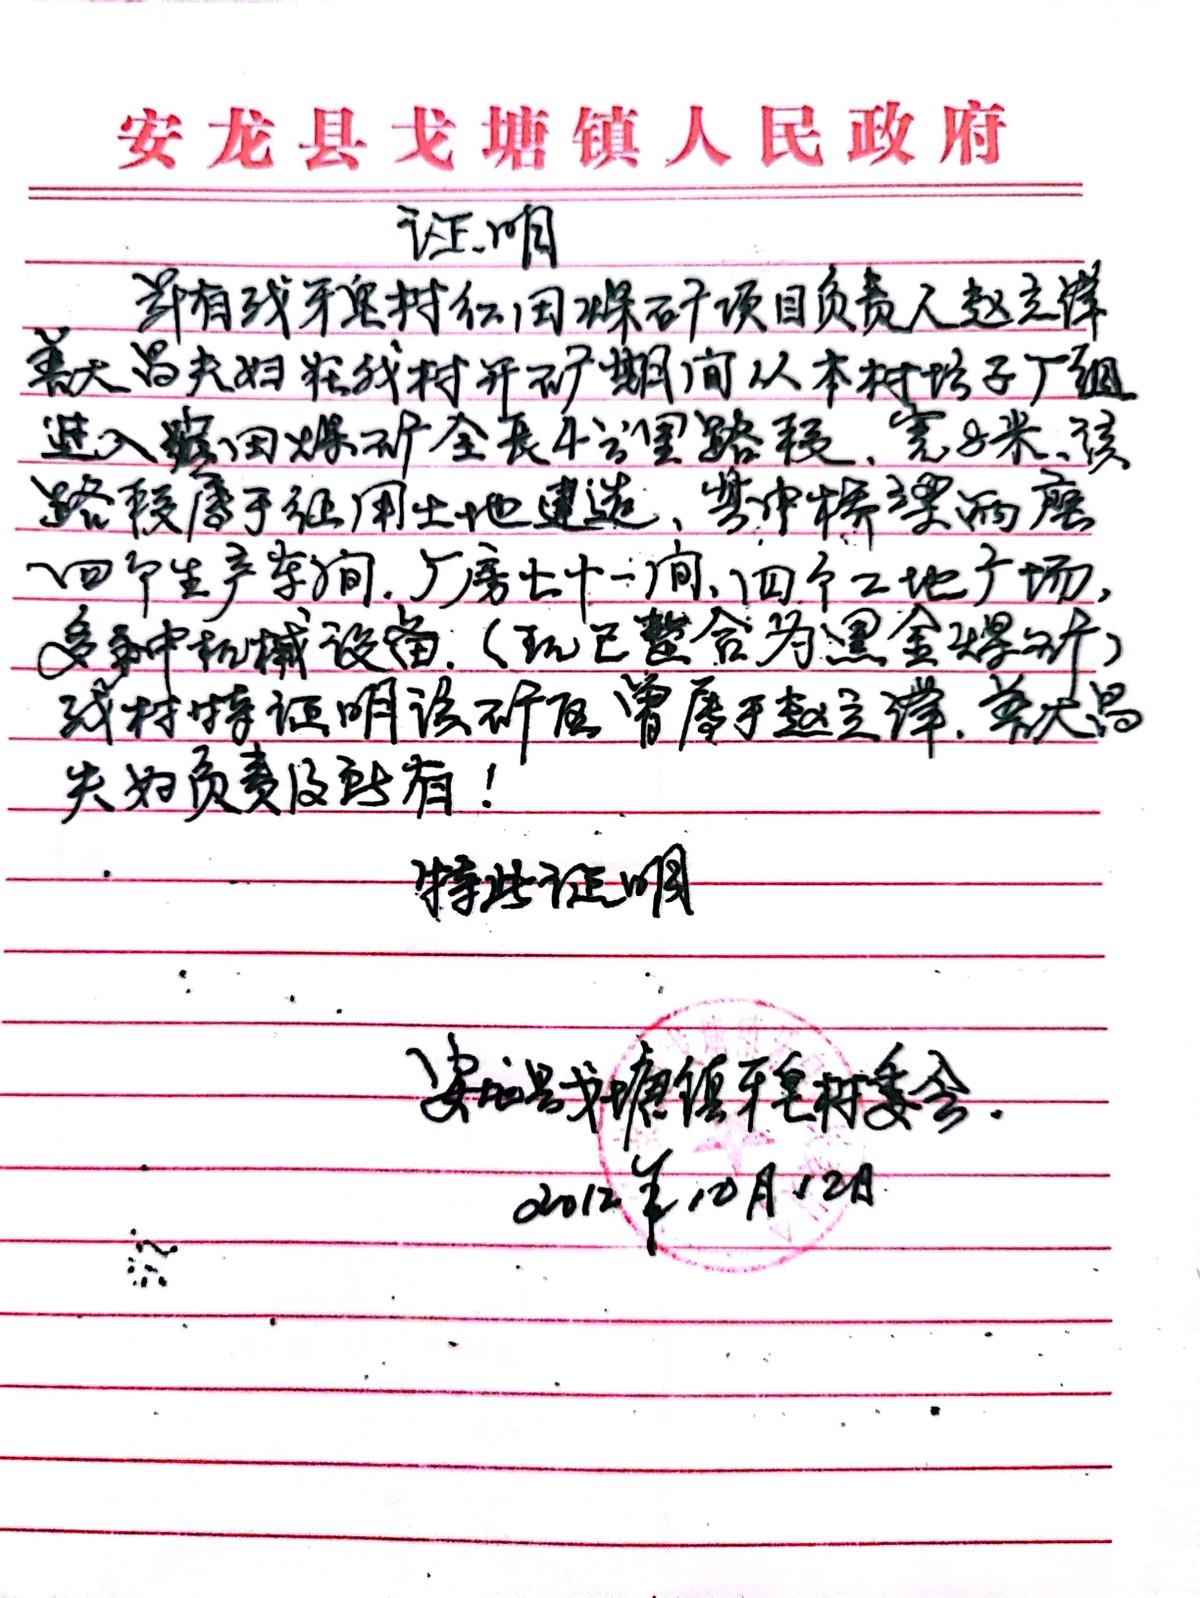 安龙县戈塘镇人民政府
证明
兹有我牙皂村红田煤矿项目负责人赵立泽
大昌夫妇在我村开矿期间从本村坊子厂组
进入田煤矿全长4公里路段、宽8米、该
路段属于征用土地建造、其中桥梁两座
四个生产车间、厂房七十一间、四个工地广场，
多种机械设备.（现已整合为黑金煤矿）
我村特证明该矿区曾属于赵立泽、大昌
夫妇负责及所有！
特此证明
安龙县戈塘镇牙皂村委会.
2012年10月12日